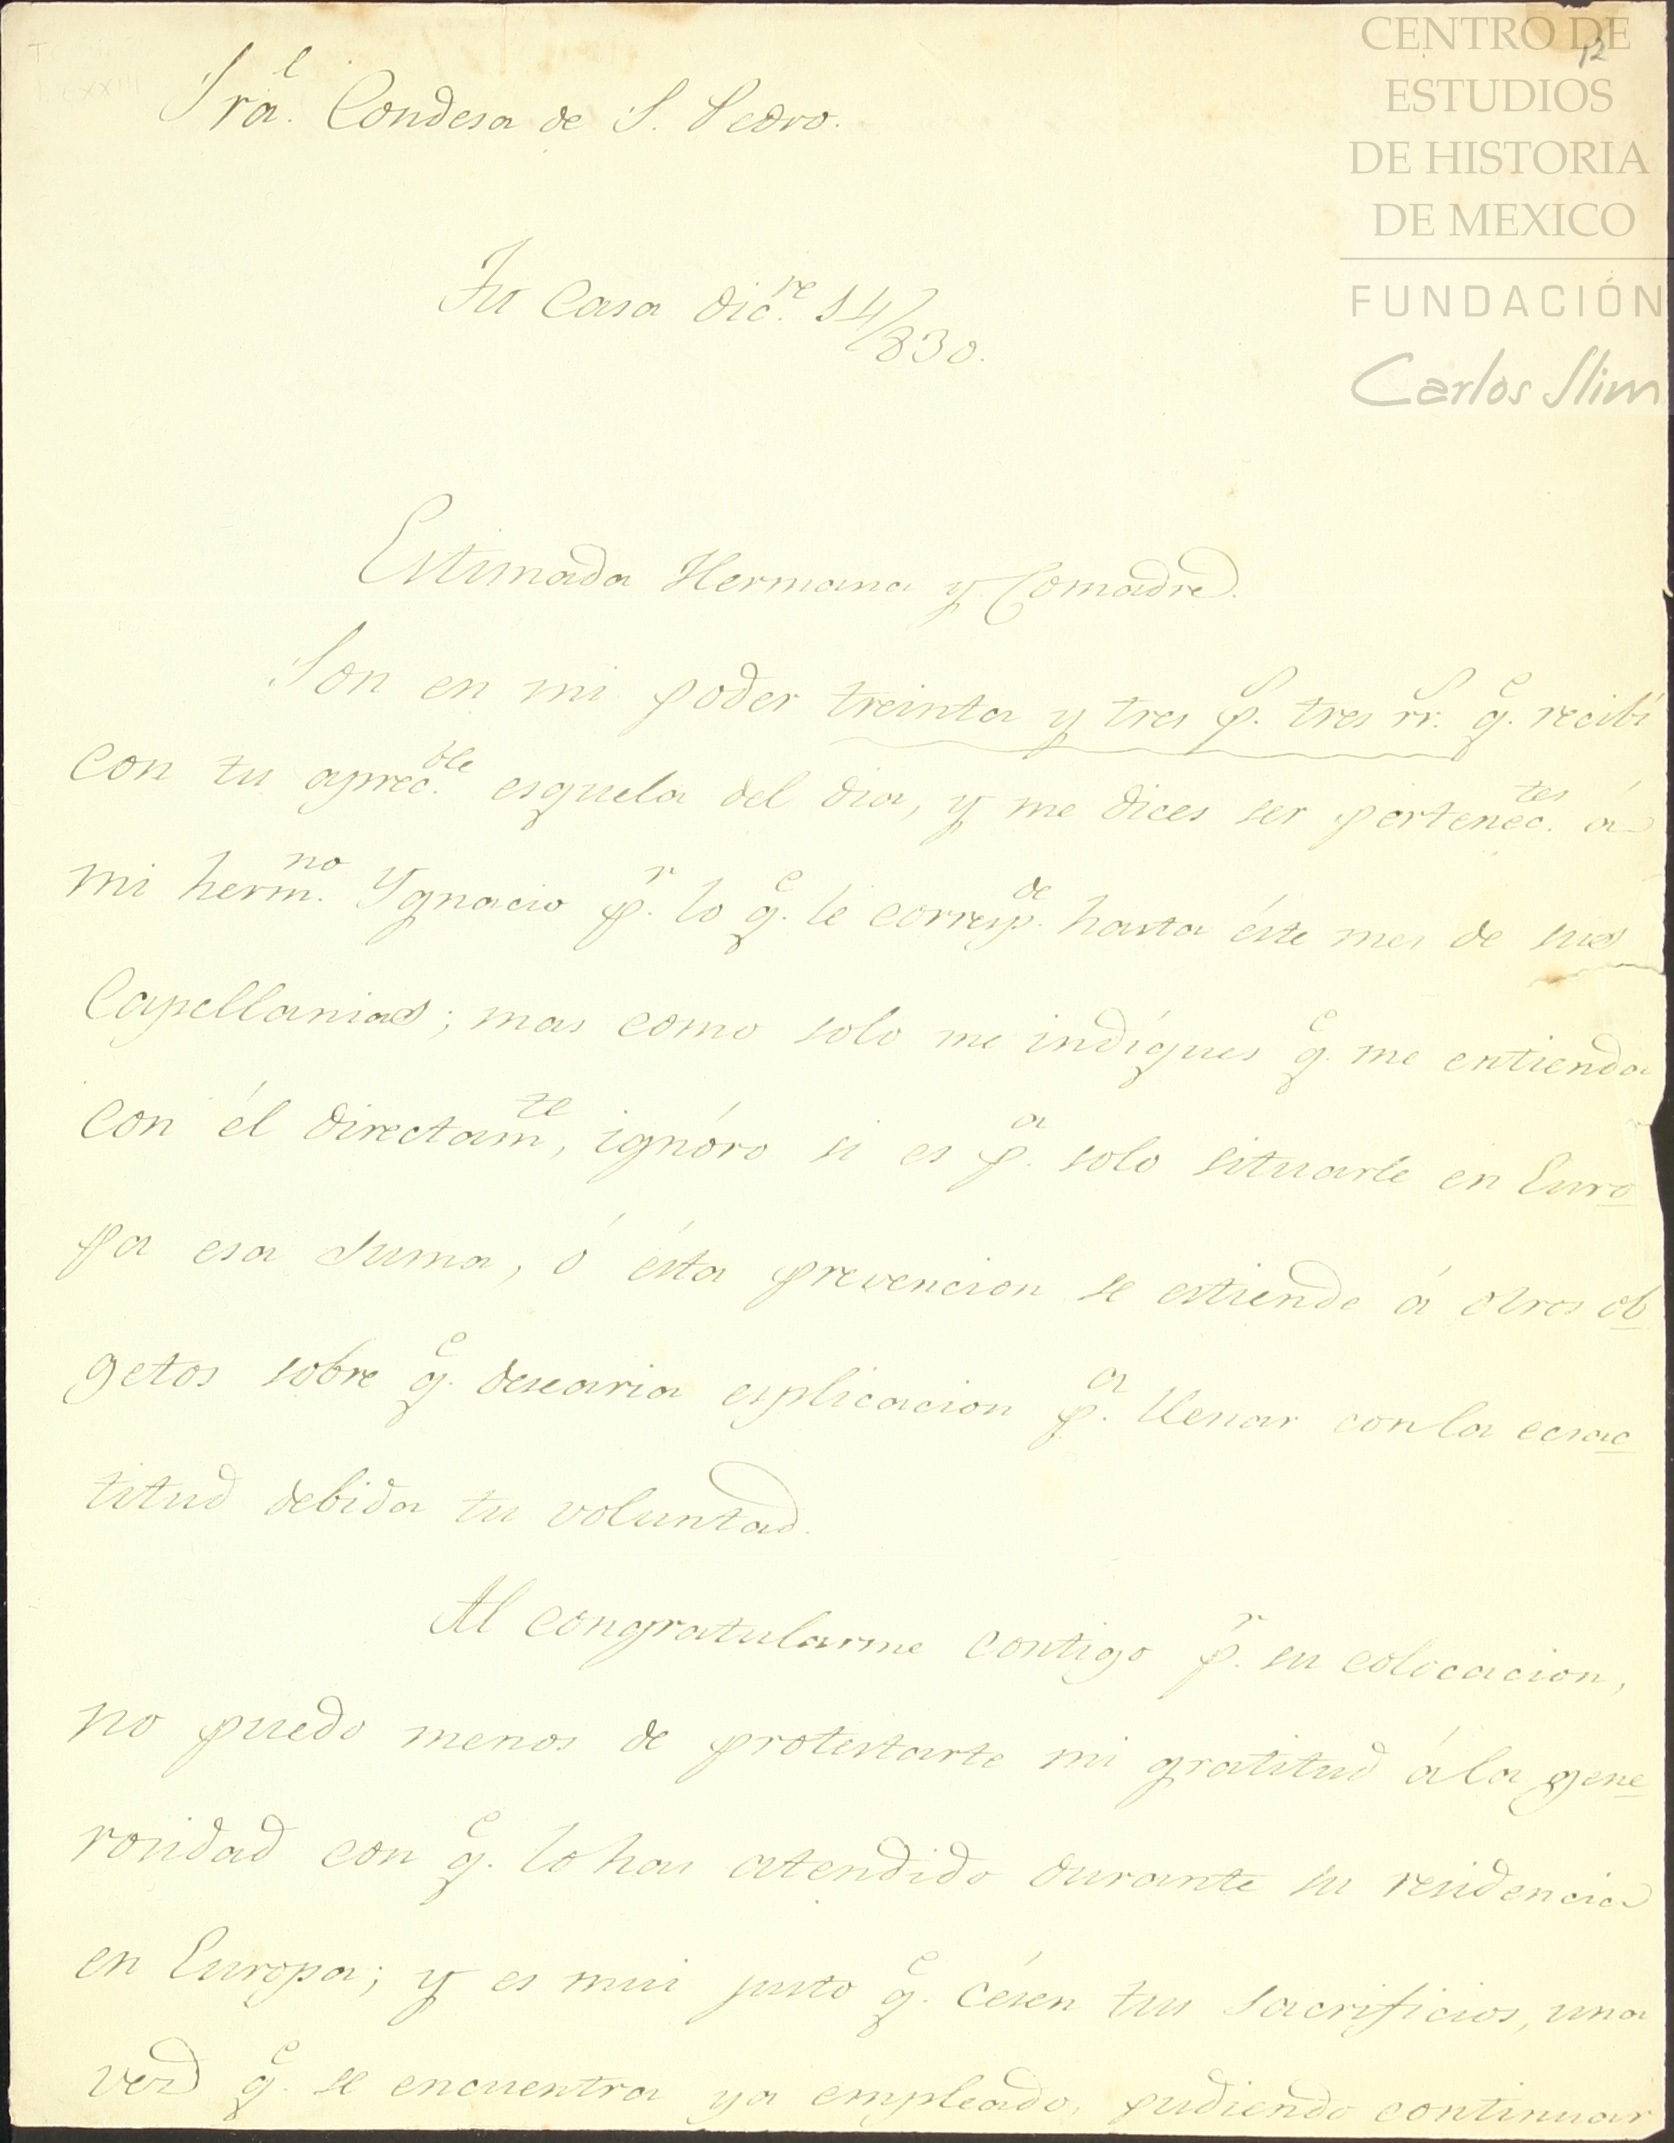 12
CENTRO DE
ESTUDIOS
DE HISTORIA
DE MEXICO
FUNDACIÓN
Carlos Slim
Sra. Condesa de S. Pedro.
Tu Casa dic.re 14/830.
Estimada Hermana y Comadre.
Son en mi poder treinta y tres p.s tres rr.s q.e recibí
con tu aprec.ble esquela del dia, y me dices ser pertenec.tes á
mi herm.no Ygnacio p.r lo q.e le corresp.de hasta éste mes de sus
Capellanias; mas como solo me indíques q.e me entienda
con él directam.te, ignóro si es p.a solo situarle en Euro
pa esa suma, ó ésta prevencion se estiende á otros ob
getos sobre q.e desearia esplicacion p.a llenar con la ecsac
titud debida tu voluntad.
Al congratularme contigo p.r su colocacion,
no puedo menos de protestarte mi gratitud á la gene
rosidad con q.e lo has atendido durante su residencia
en Europa; y es mui justo q.e césen tus sacrificios, una
vez q.e se encuentra ya empleado, pudiendo continuar